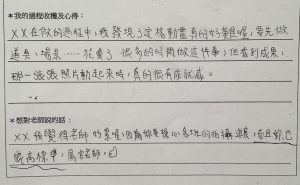 *我的過程收穫及心得:
XX在做的過程中,我發現了定格動畫真的好難喔,要先做
道具、場景……花費了很多的時間做這件事,但看到成果,
那一張張照片動起來時,真的很有成就感。
*想對老師說的話:
XX 我覺得老師好厲害,因為你要擔心各組的拍攝進度,而且你也
很高標準,厲害老師。